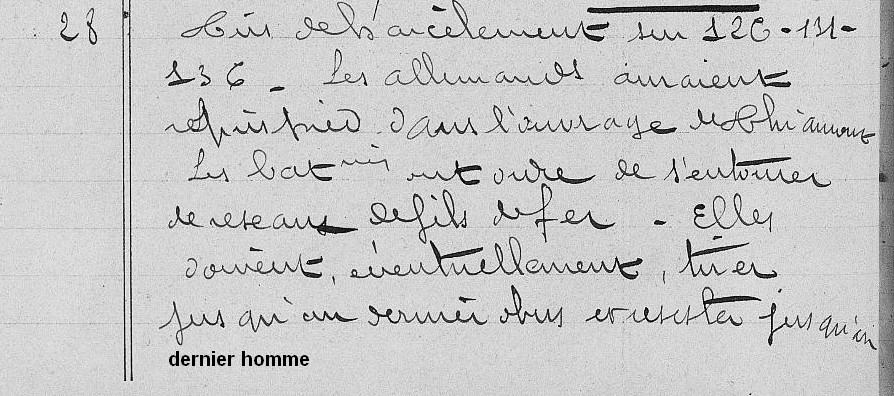 28 Tirs de harcèlement sur 126-131-
136 - Les allemands auraient
repris pied dans l'ouvrage de Thiaumont
Les batries ont ordre de s'entourer
de reseaux de fils de fer - Elles
doivent, éventuellement, tirer
jusqu'au dernier obus et resister jusqu'au
dernier homme